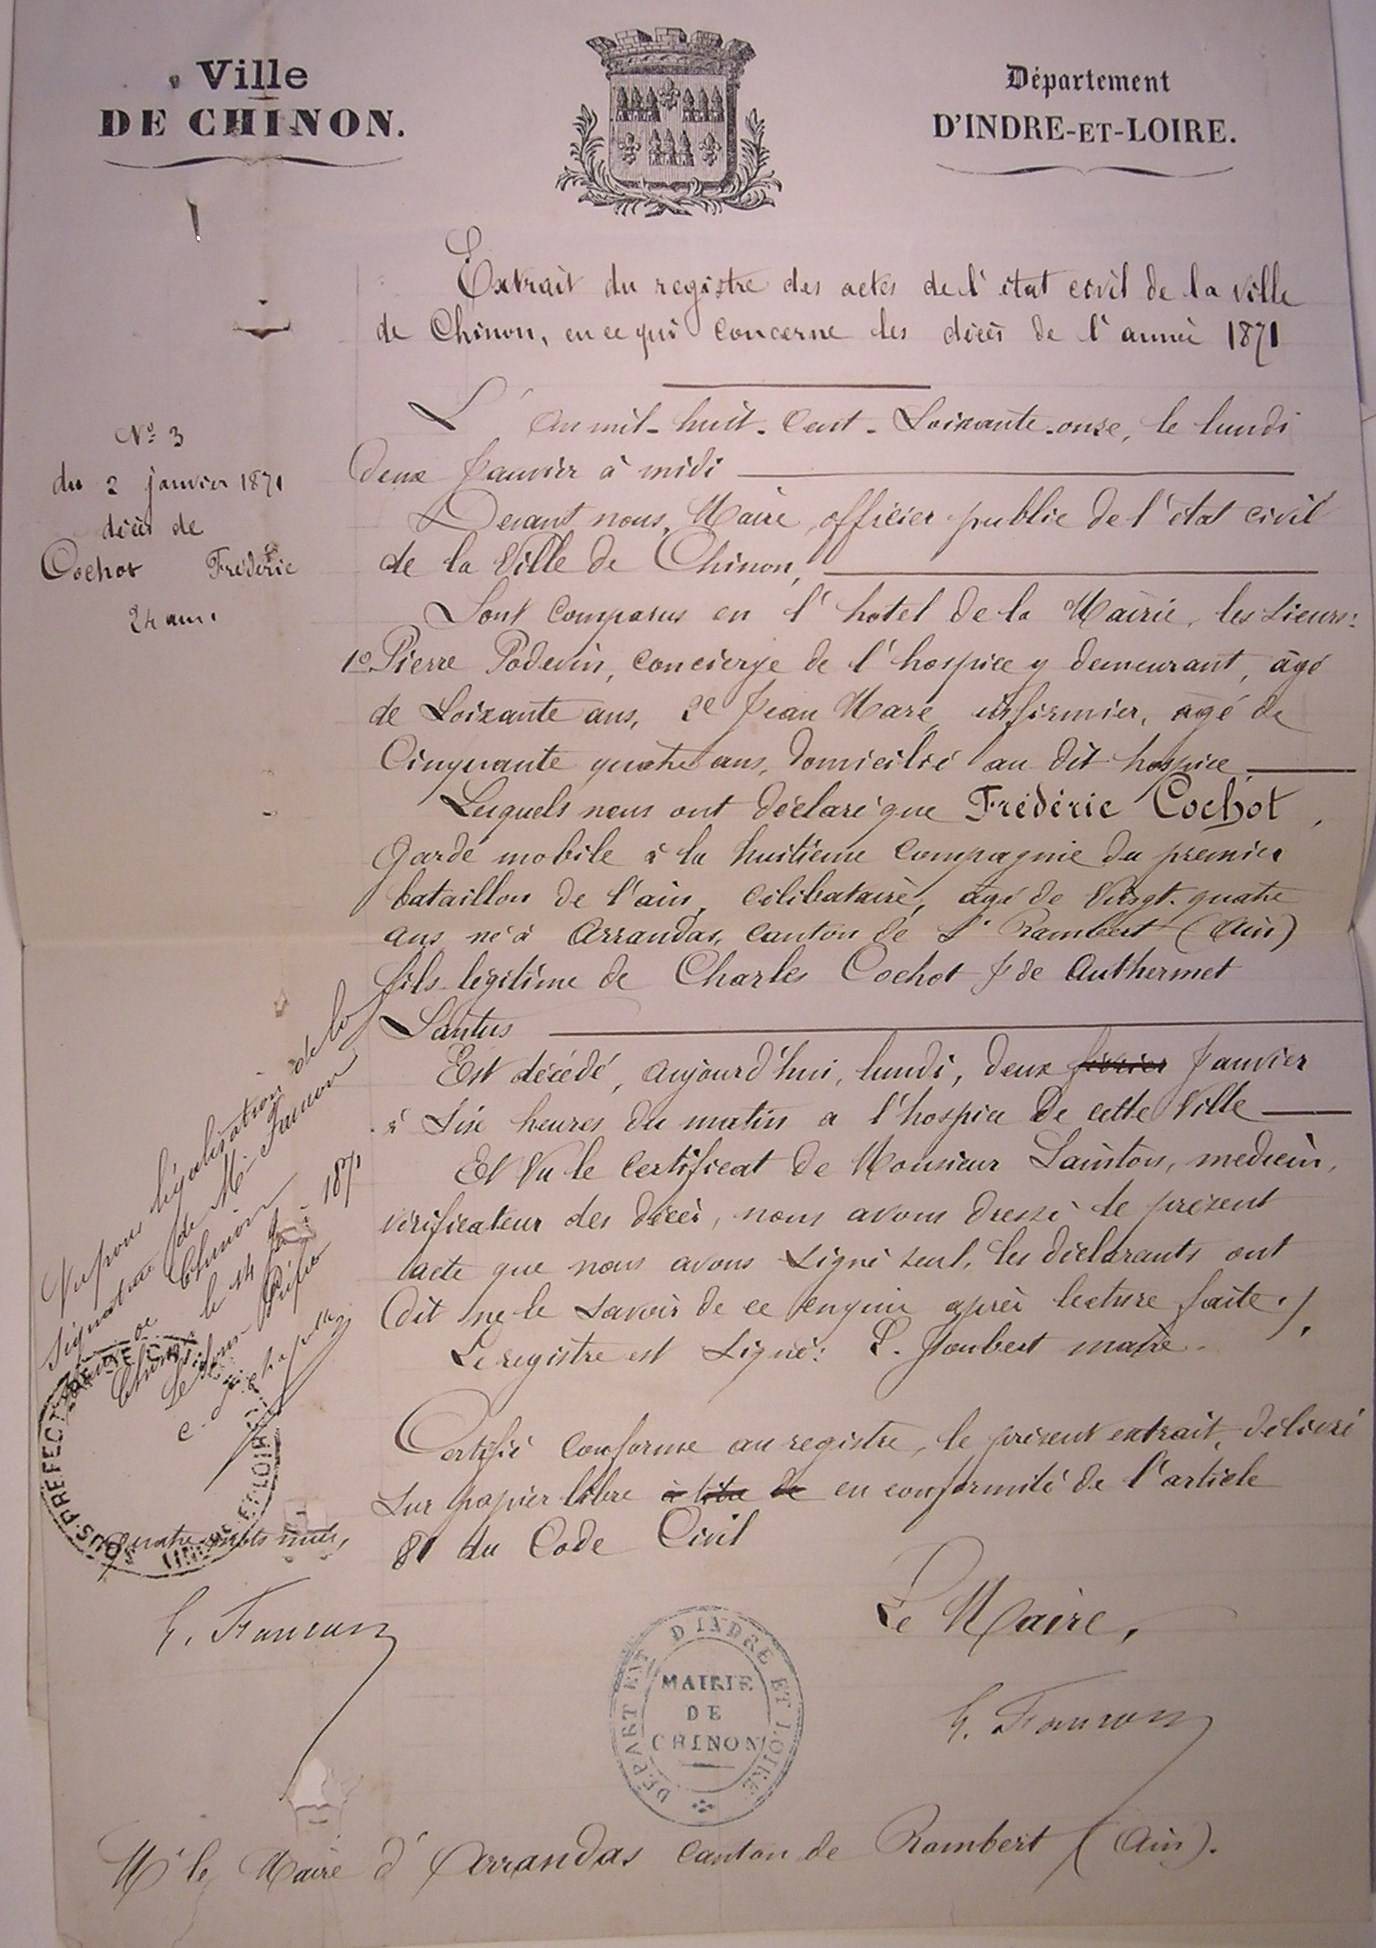 Ville
DE CHINON.
Département
D'INDRE-ET-LOIRE.
Extrait du registre des actes de l'état civil de la ville
de Chinon, en ce qui concerne les décès de l'année 1871
No 3
du 2 janvier 1871
décès de
Cochot Frédéric
24 ans
L'an mil-huit-cent-Soixante-onze, le lundi
deux Janvier à midi
Devant nous, Maire officier public de l'état civil
de la Ville de Chinon,
Sont comparus en l'hotel de la Mairie, les sieurs:
1o Pierre Podevin, concierge de l'hospice y demeurant, âgé
de Soixante ans, 2e Jean Mare infirmier, agé de
Cinquante quatre ans, domicilié au dit hospice
Lesquels nous ont déclaré que Frédéric Cochot,
Garde mobile à la huitieme compagnie du premier
bataillon de l'ain, célibataire, âgé de Vingt-quatre
ans né à Arrandas, canton de St Rambert (Ain)
fils légitime de Charles Cochot & de Authermet
Santus
Est décédé, aujourd'hui, lundi, deux février Janvier
à Six heures du matin a l'hospice de cette Ville
Et Vu le certificat de Monsieur Sainton, medecin,
vérificateur des décès, nous avons dressé le présent
acte que nous avons Signé seul, les déclarants ont
dit ne le savoir de ce enquis après lecture faite./.
Le registre est Signé: L. Joubert maire.
Vu pour légalisation de la
Signature de Mr Faucon
Maire de Chinon
Chinon le 14 1871
Le Sous Préfet
SOUS-PRÉFECTURE DE CHINON
INDRE-ET-LOIRE
Certifié conforme au registre, le présent extrait, délivré
sur papier libre à titre de en conformité de l'article
80 du Code Civil
Quatre mots nuls,
Le Maire,
DEPARTEMENT D'INDRE ET LOIRE
MAIRIE
DE
CHINON
Mr le Maire d'Arrandas canton de Rambert (Ain).